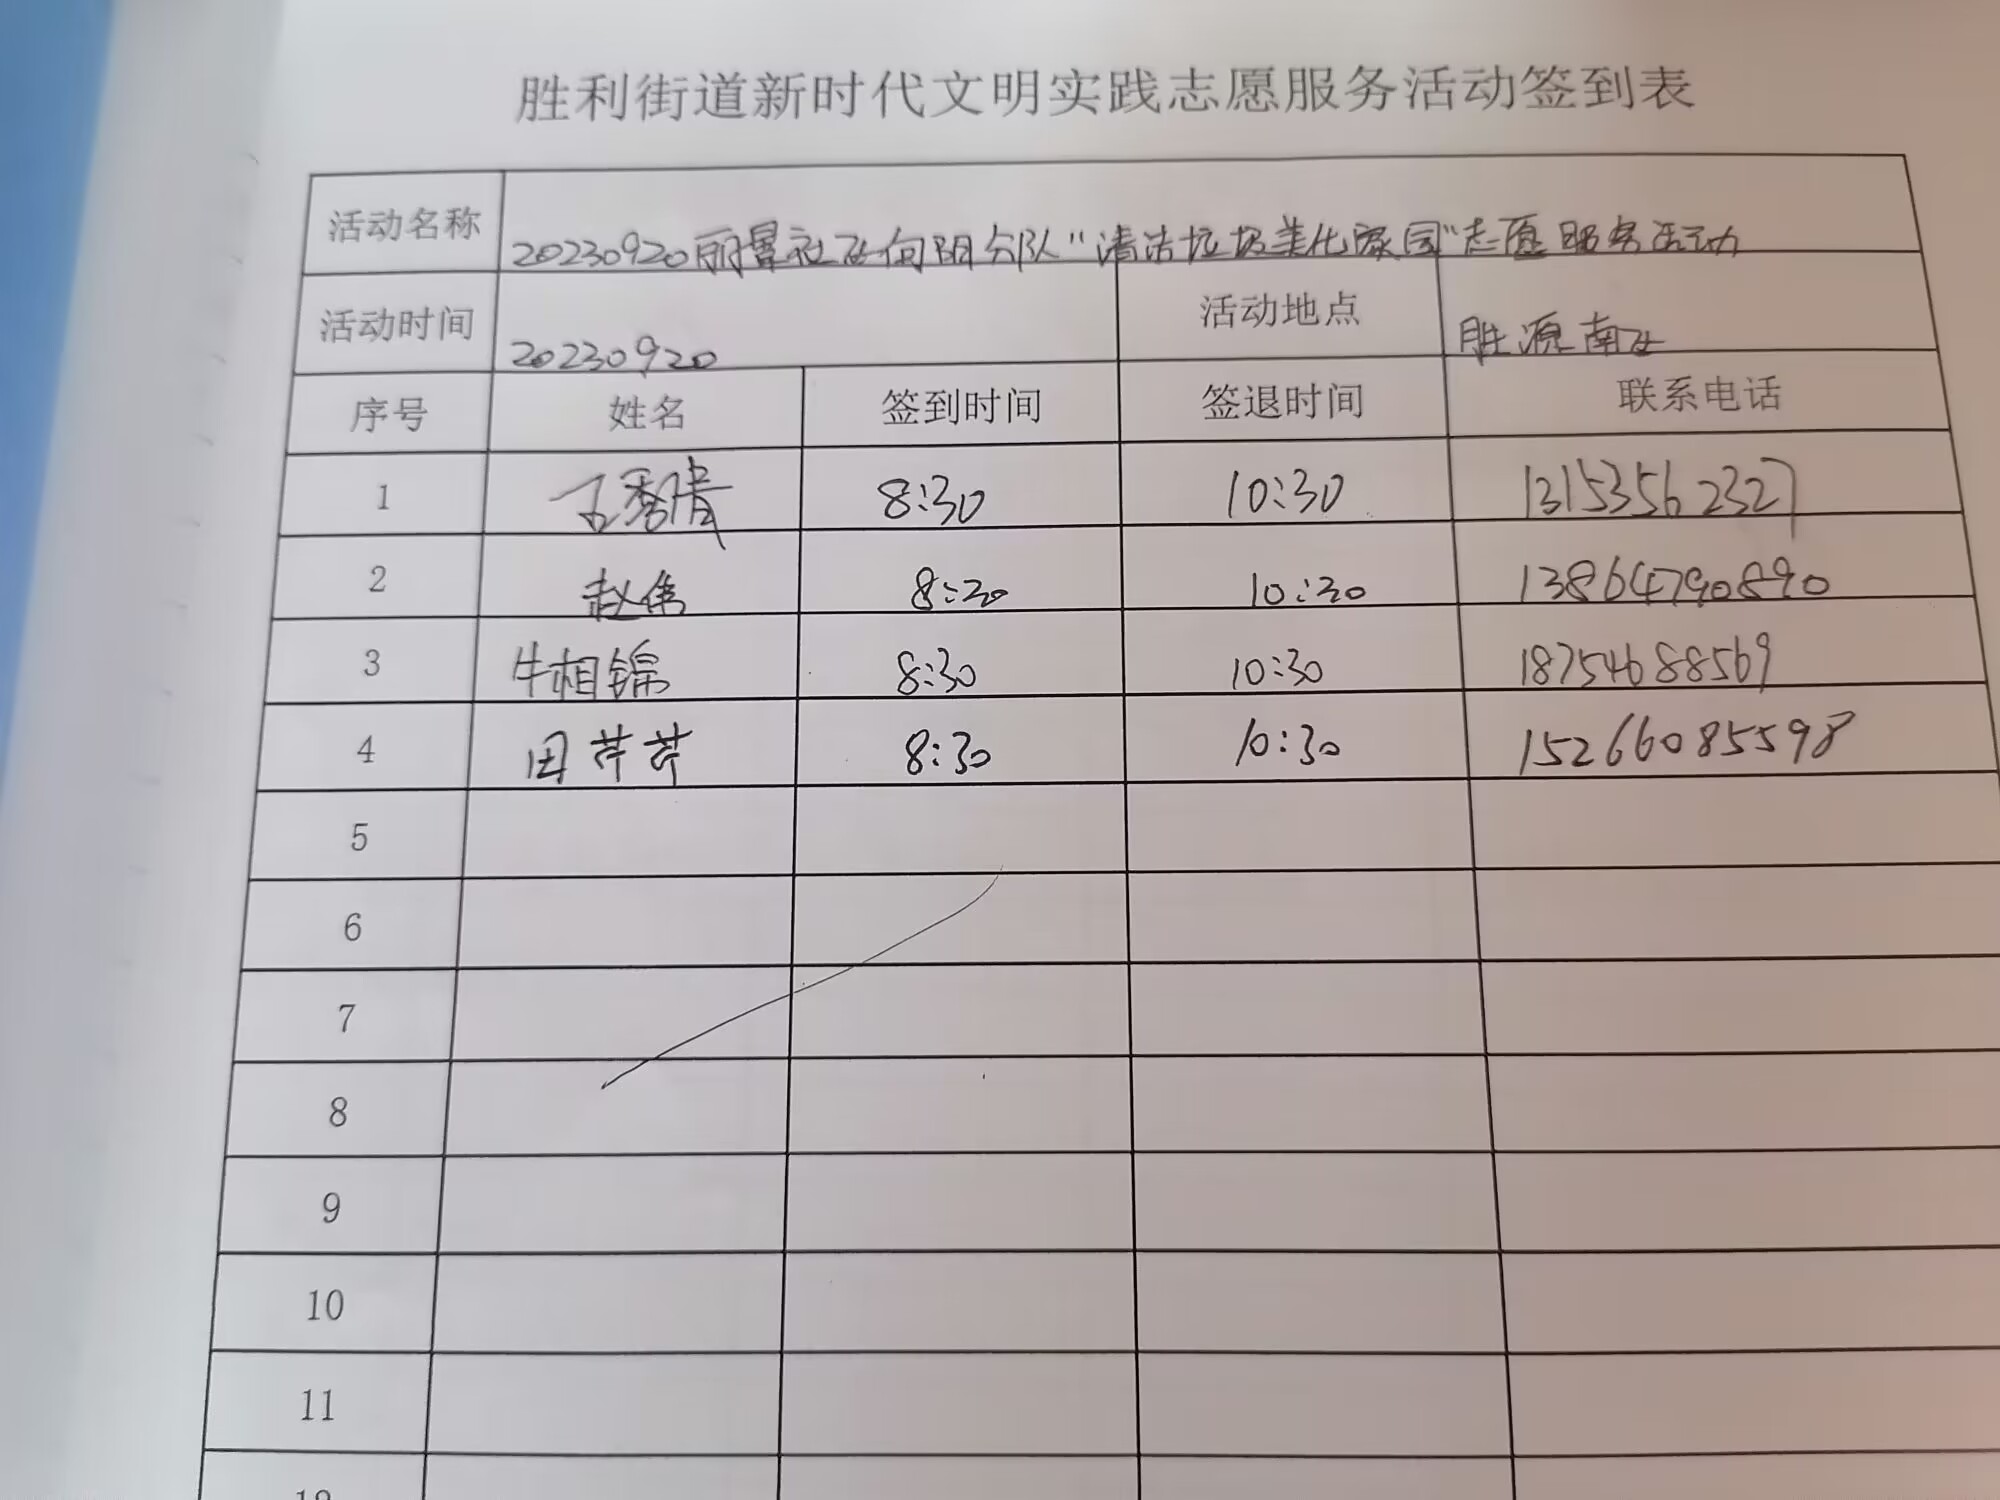 胜利街道新时代文明实践志愿服务活动签到表
活动名称 20230920丽景社区向阳分队"清洁垃圾美化家园"志愿服务活动
活动时间 20230920 活动地点 胜源南区
序号 姓名 签到时间 签退时间 联系电话
1 秀清 8:30 10:30 13153562327
2 赵伟 8:30 10:30 13864790890
3 牛相锦 8:30 10:30 18754688569
4 田芹芹 8:30 10:30 15266085598
5
6
7
8
9
10
11